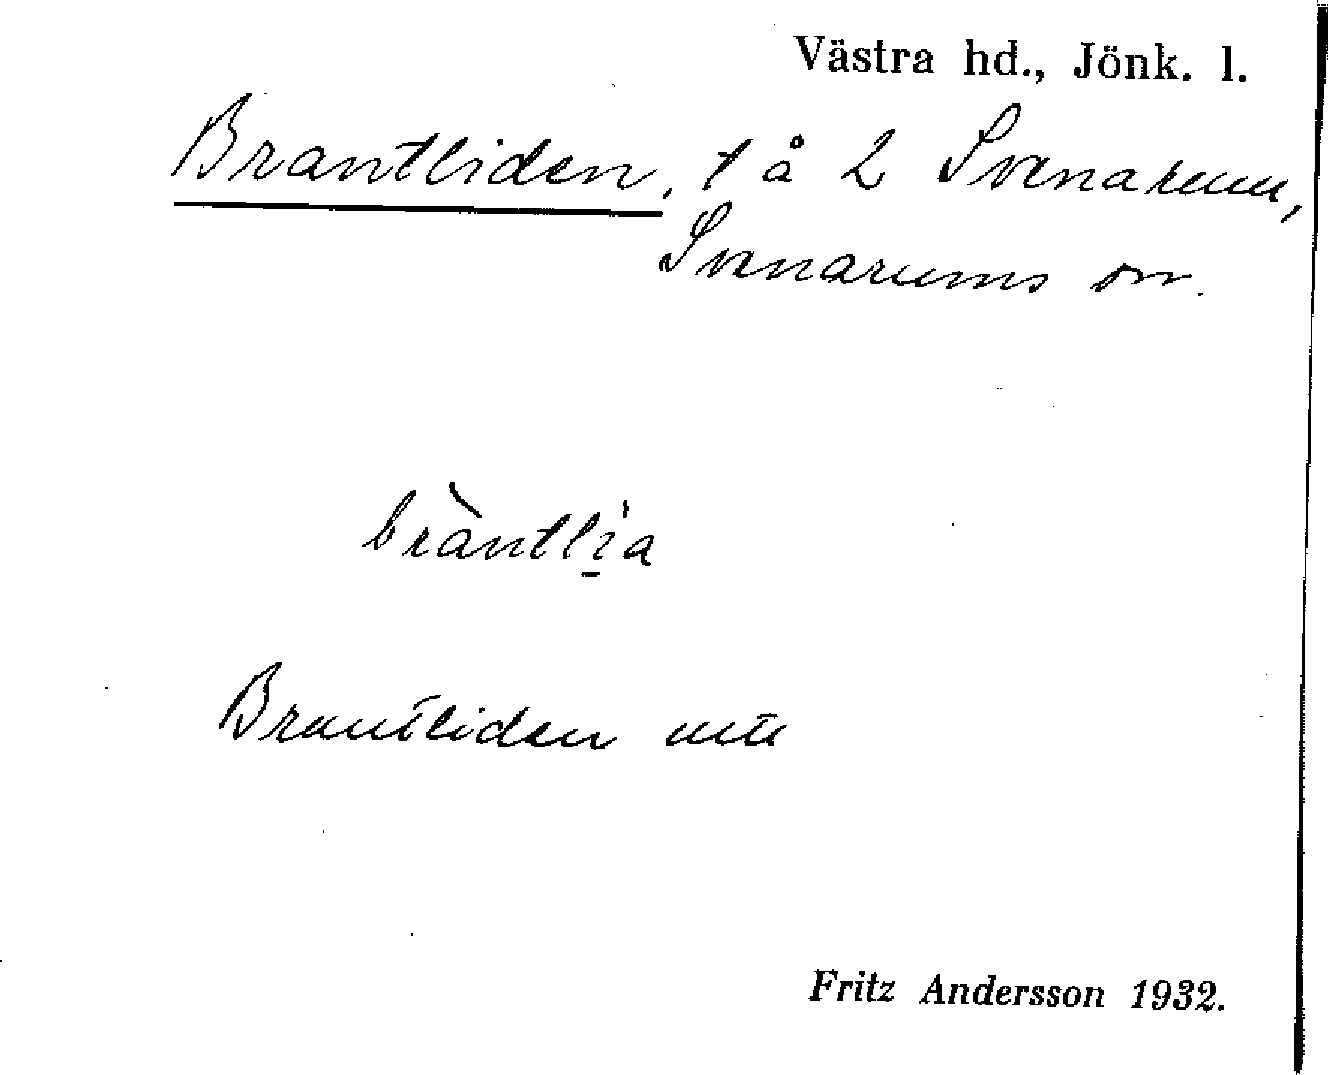 Västra hd., Jönk. l.
Brantliden, t å 2 Svenarum,
Svenarums sn.
bràntli̠a
Brantliden
Fritz Andersson 1932.